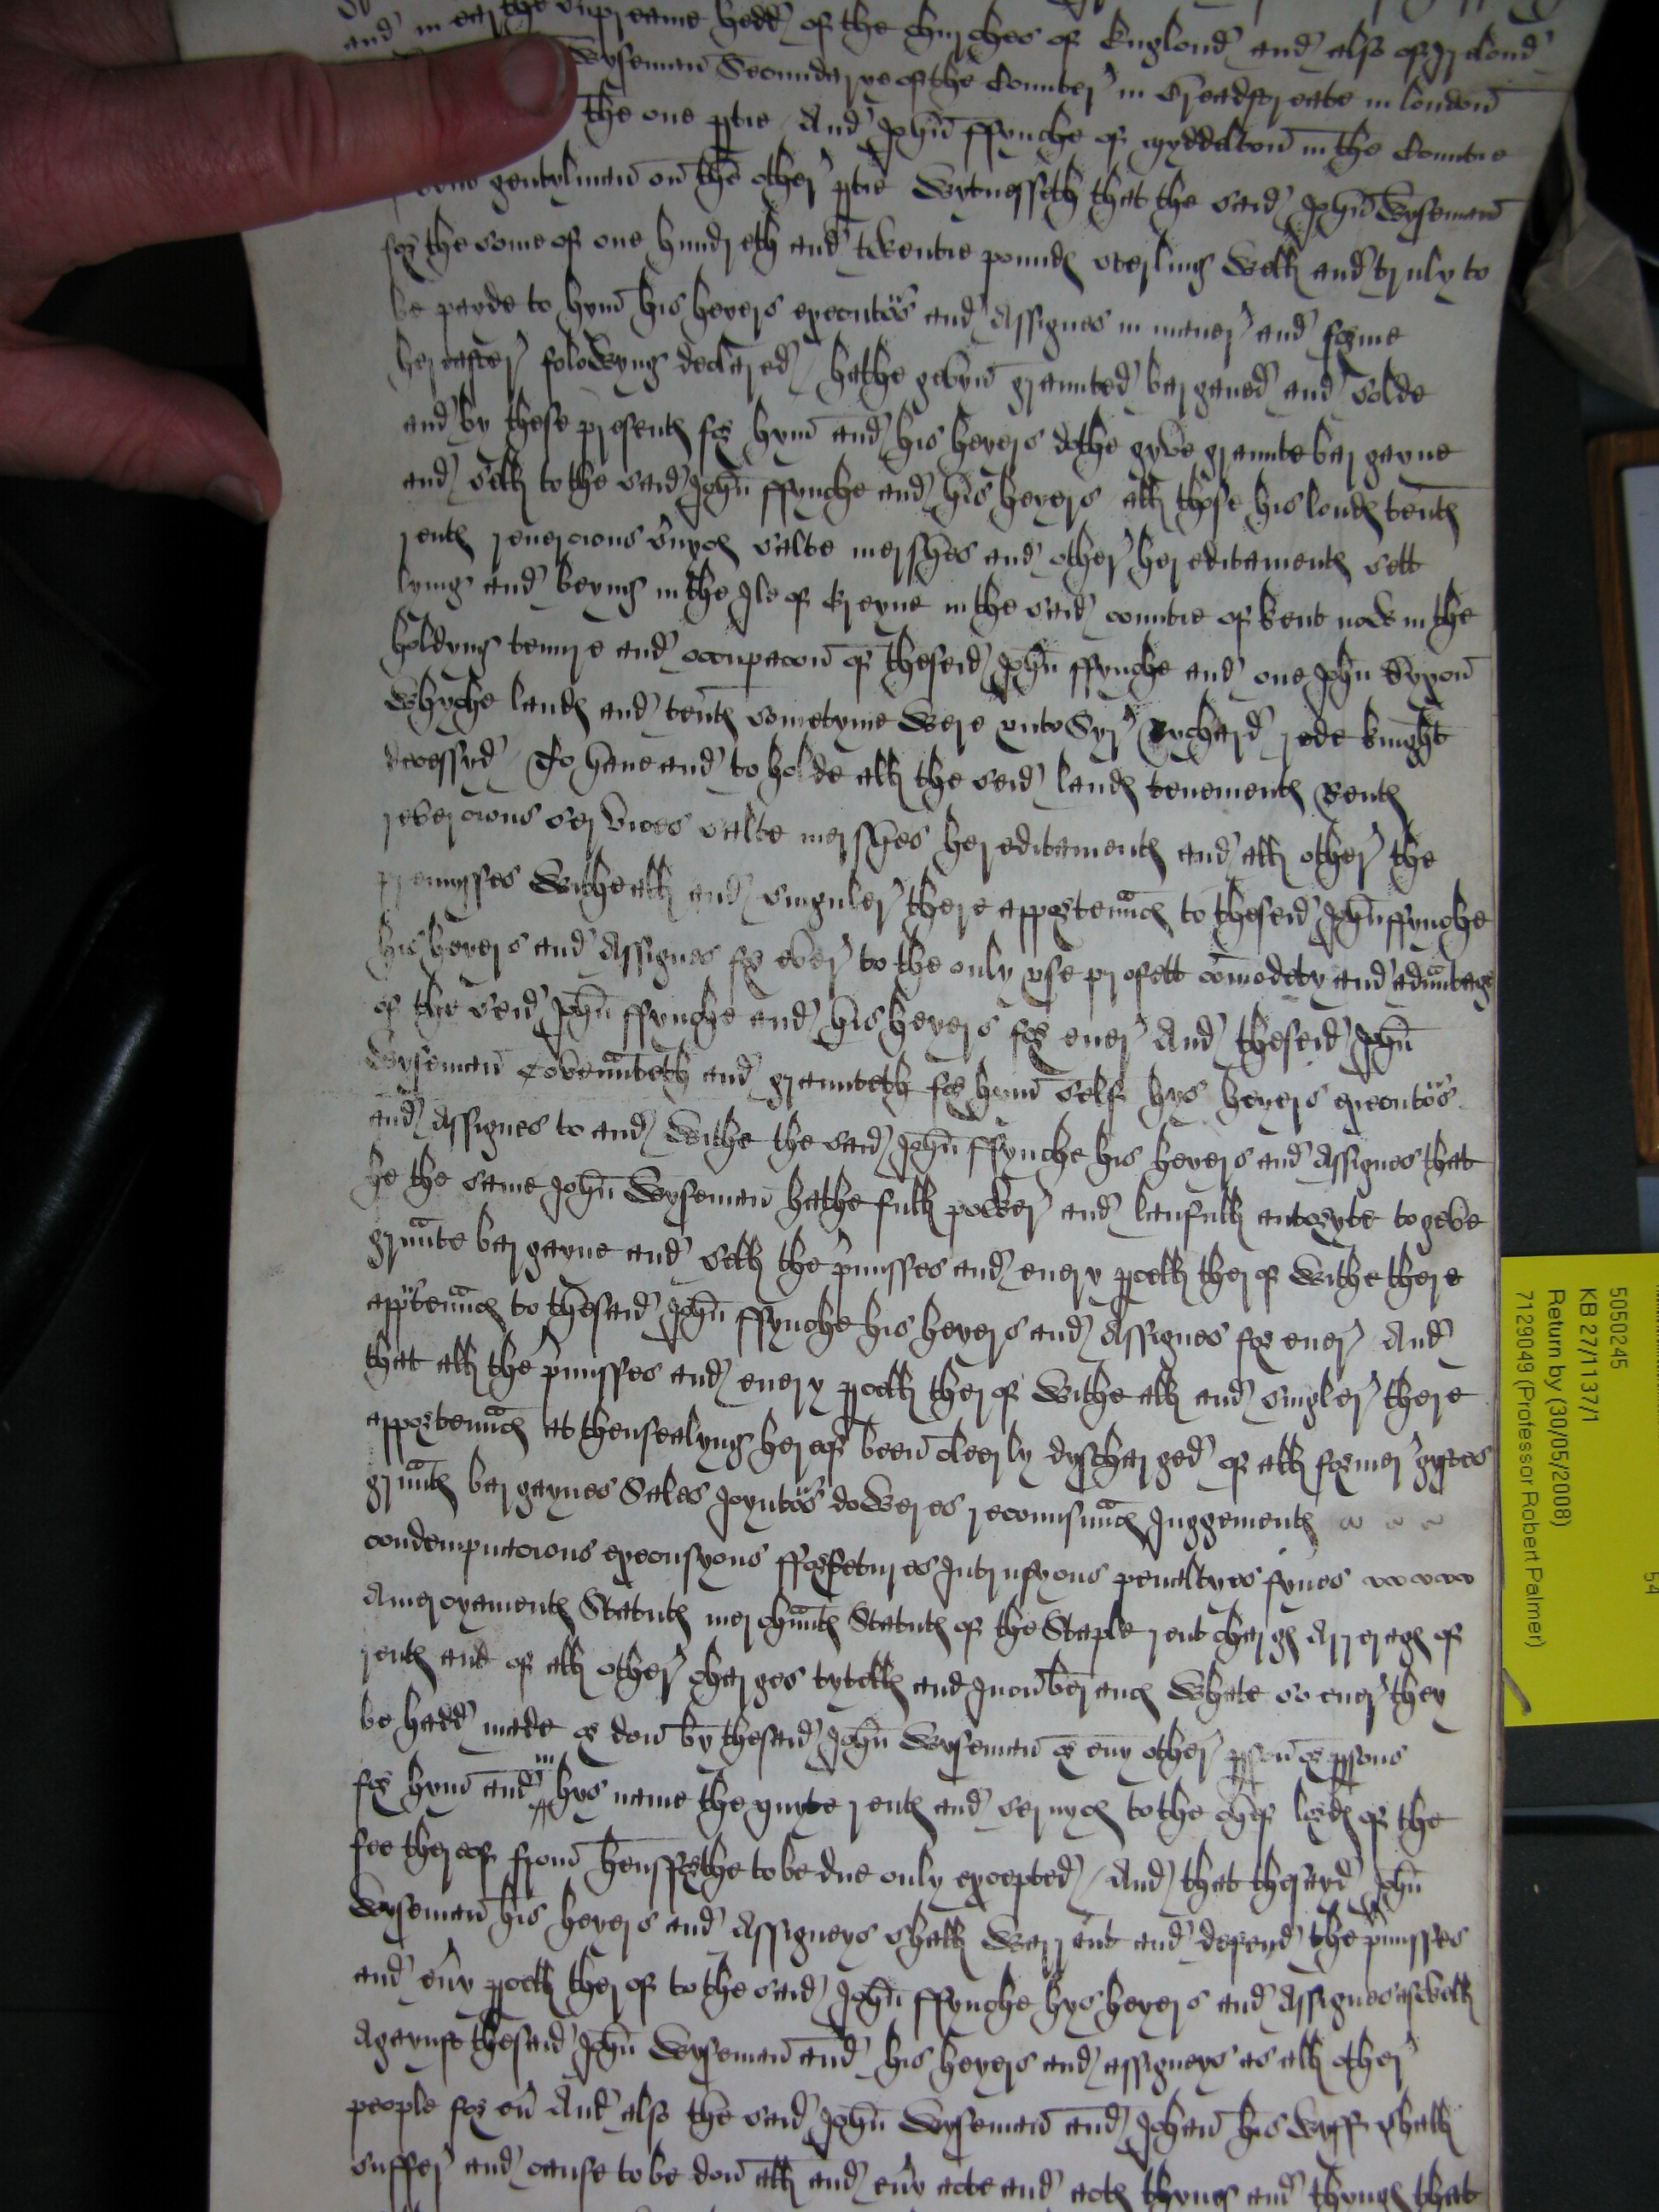 and in erthe supreame hedd of the churches of Englond and also of Irelond
Wyseman Secundarye of the Counter in Breadstreate in london
the one ptie And John ffynche of Myddelton in the Countie
gentylman on the other ptie Wytnesseth that the said John Wyseman
for the some of one hundreth and twentie pounds sterling well and truly to
be payde to hym his heyers executors and Assignes in maner and forme
hereafter folowyng declared / hathe gevyn graunted barganed and solde
and by these presents for hym and his heyers dothe gyve graunte bargayne
and sell to the said John ffynche and his heyers all those his londs tents
rents revercions svyces salte mershes and other hereditaments sett
lying and beyng in the Ile of Greyne in the said countie of kent now in the
holdyng tenure and occupacion of theseid John ffynche and one John Dyxon
Whyche lands and tents sometyme were unto Syr Rychard rede knight
decessyd To have and to holde all the seid lands tenements Rents
revercions servyces salte mershes hereditaments and all other the
premysses withe all and singuler there appertenancs to theseid John ffynche
his heyers and Assignes for ever to the only use profett comodety and advantage
of the seid John ffynche and his heyers for ever And theseid John
Wyseman Covenaunteth and graunteth for hym self hys heyers executors
and Assignes to and Withe the said John ffynche his heyers and Assignes that
he the same John Wyseman hathe full power and laufull autoryte to geve
graunte bargayne and sell the pmisses and every pcell therof Withe there
apptenancs to thesaid John ffynche his heyers and Assignes for ever And
that all the pmysses and every pcell therof Withe all and singler there
apportenancs at thensealyng hereof been cleerly dyscharged of all former gyftes
graunts bargaynes Sales Joyntors doweres recognisancs Juggements
condempnacions execusyons fforfetures Intrusyons penaltyes fynes
Amercyaments Statuts merchaunts Statuts of the Staple rent chargs Arrerags of
rents and of all other charges tytells and Incumberancs What so ever they
be hadd made or don by thesaid John Wyseman or eny other pson or psons
for hym and in hys name the quyte rents and servycs to the chef lords of the
fee thereof from hensfforthe to be due only excepted / And that thesayd John
Wyseman his heyers and Assigneys shall Warrant and defend the pmisses
and evy pcell therof to the said John ffynche hys heyers and Assignes aswell
Agaynst thesaid John Wyseman and his heyers and assigneys as all other
people for ev And also the said John Wyseman and Johan his wyff shall
suffer and cause to be don all and evy acte and acts thyng and thyngs that
5050245
KB 27/1137/1
Return by (30/05/2008)
7129049 (Professor Robert Palmer)
54